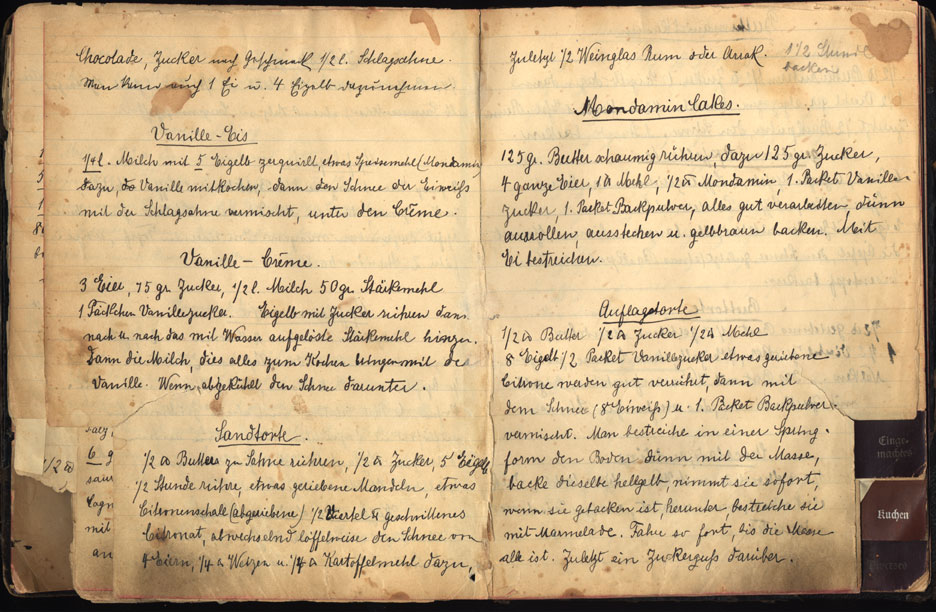 Chocolade, Zucker nach Geschmack 1/2 l. Schlagsahne.
Man kann auch 1 Ei u. 4 Eigelb dazunehmen
Vanille-Eis
1/4 l. Milch mit 5 Eigelb zerquirlt, etwas Speisemehl (Mondamin)
dazu, Vanille mitkochen, dann den Schnee der Eiweiß
mit der Schlagsahne vermischt, unter den Crême.
Vanille-Crême.
3 Eier, 75 gr. Zucker, 1/2 l. Milch 50 gr. Stäkmehl
1 Päckchen Vanillezucker. Eigelb mit Zucker rühren dann
nach u. nach das mit Wasser aufgelöste Stäkemehl hinzu.
Dann die Milch, dies alles zum Kochen bringen mit de
Vanille. Wenn abgekühlt den Schnee darunter.
Sandtorte.
1/2 ℔ Butter zu Sahne rühren, 1/2 ℔ Zucker, 5 Eigelb
1/2 Stunde rühre, etwas geriebene Mandeln, etwas
Citronenschale (abgeriebene) 1/2 Viertel ℔ geschnittenes
Citronat, abwechselnd löffelweise den Schnee von
4 Eiern, 1/4 ℔ Weizen u. 1/4 ℔ Kartoffelmehl dazu,
Zuletzt 1/2 Weinglas Rum oder Arak.
1 1/2 Stunde
backen
Mondamin Cakes.
125 gr. Butter schaumig rühren, dazu 125 gr Zucker,
4 ganze Eier, 1 ℔ Mehl, 1/2 ℔ Mondamin, 1. Packet Vanille-
zucker, 1. Packet Backpulver, alles gut verarbeiten, dünn
ausrollen, ausstechen u. gelbbraun backen. Mit
Ei bestreichen.
Auflagetorte
1/2 ℔ Butter 1/2 ℔ Zucker 1/2 ℔ Mehl
8 Eigelb 1/2 Packet Vanillezucker etwas geriebene
Citrone werden gut verrührt, dann mit
dem Schnee (8 Eiweiß) u. 1. Packet Backpulver
vermischt. Man bestreiche in einer Spring-
form den Boden dünn mit der Masse,
backe dieselbe hellgelb, nimmt sie sofort,
wenn sie gebacken ist, herunter bestreiche sie
mit Marmelade. Fahre so fort, bis die Masse
alle ist. Zuletzt ein Zuckerguß darüber.
Einge-
machtes
Kuchen